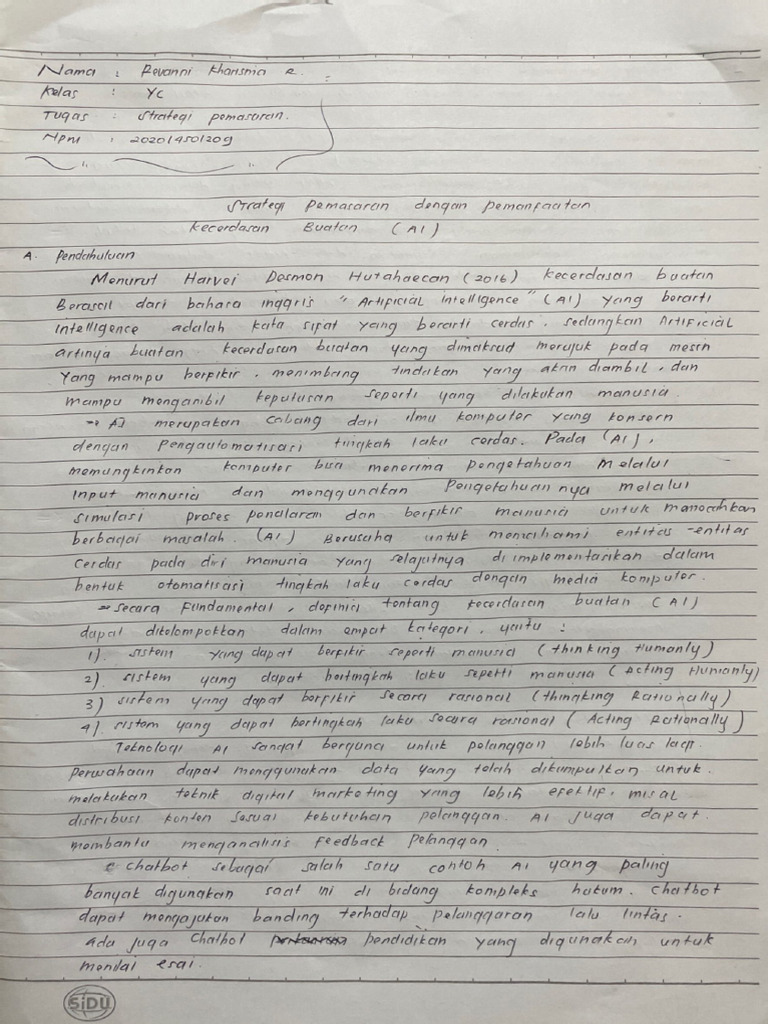 Nama : Revanni Kharisma R.
Kelas : YC
Tugas : Strategi pemasaran.
Npm : 202014501209
Strategi Pemasaran dengan pemanfaatan
Kecerdasan Buatan (AI)
A. Pendahuluan
Menurut Harvei Desmon Hutahaecan (2016) kecerdasan buatan
Berascil dari bahasa inggris "Artificial intelligence" (AI) yang berarti
Intelligence adalah kata sifat yang berarti cerdas, sedangkan Artificial
artinya buatan kecerdasan buatan yang dimaksud merujuk pada mesin
Yang mampu berfikir, menimbang tindakan yang akan diambil, dan
mampu mengambil keputusan seperti yang dilakukan manusia.
→ AI merupakan cabang dari ilmu komputer yang konsern
dengan Pengautomatisasi tingkah laku cerdas. Pada (AI),
memungkinkan komputer bisa menerima pengetahuan Melalui
Input manusia dan menggunakan Pengetahuannya melalui
simulasi proses penalaran dan berfikir manusia untuk memecahkan
berbagai masalah. (AI) Berusaha untuk memahami entitas-entitas
Cerdas pada diri manusia yang selajutnya di implementasikan dalam
bentuk otomatisasi tingkah laku cerdas dengan media komputer.
→ Secara Fundamental, definisi tentang kecerdasan buatan (AI)
dapat dikelompokkan dalam empat kategori, yaitu :
1). Sistem yang dapat berfikir seperti manusia (thinking Humanly)
2) sistem yang dapat bertingkah laku sepetti manusia (Acting Humanly)
3) sistem yang dapat berfikir secara rasional (thingking Rationally)
4). sistem yang dapat bertingkah laku secara rasional (Acting Rationally)
Teknologi AI sangat berguna untuk pelanggan lebih luas lagi.
Perusahaan dapat menggunakan data yang telah dikumpulkan untuk.
melakukan teknik digital marketing yang lebih efektif, misal
distribusi konten sesuai kebutuhan pelanggan. AI juga dapat.
membantu menganalisis Feedback Pelanggan.
chatbot sebagai salah satu contoh AI yang paling
banyak digunakan saat ini di bidang kompleks hukum. Chatbot
dapat mengajukan banding terhadap pelanggaran lalu lintas.
Ada juga Chatbot pendidikan yang digunakan untuk
menilai esai.
SiDU